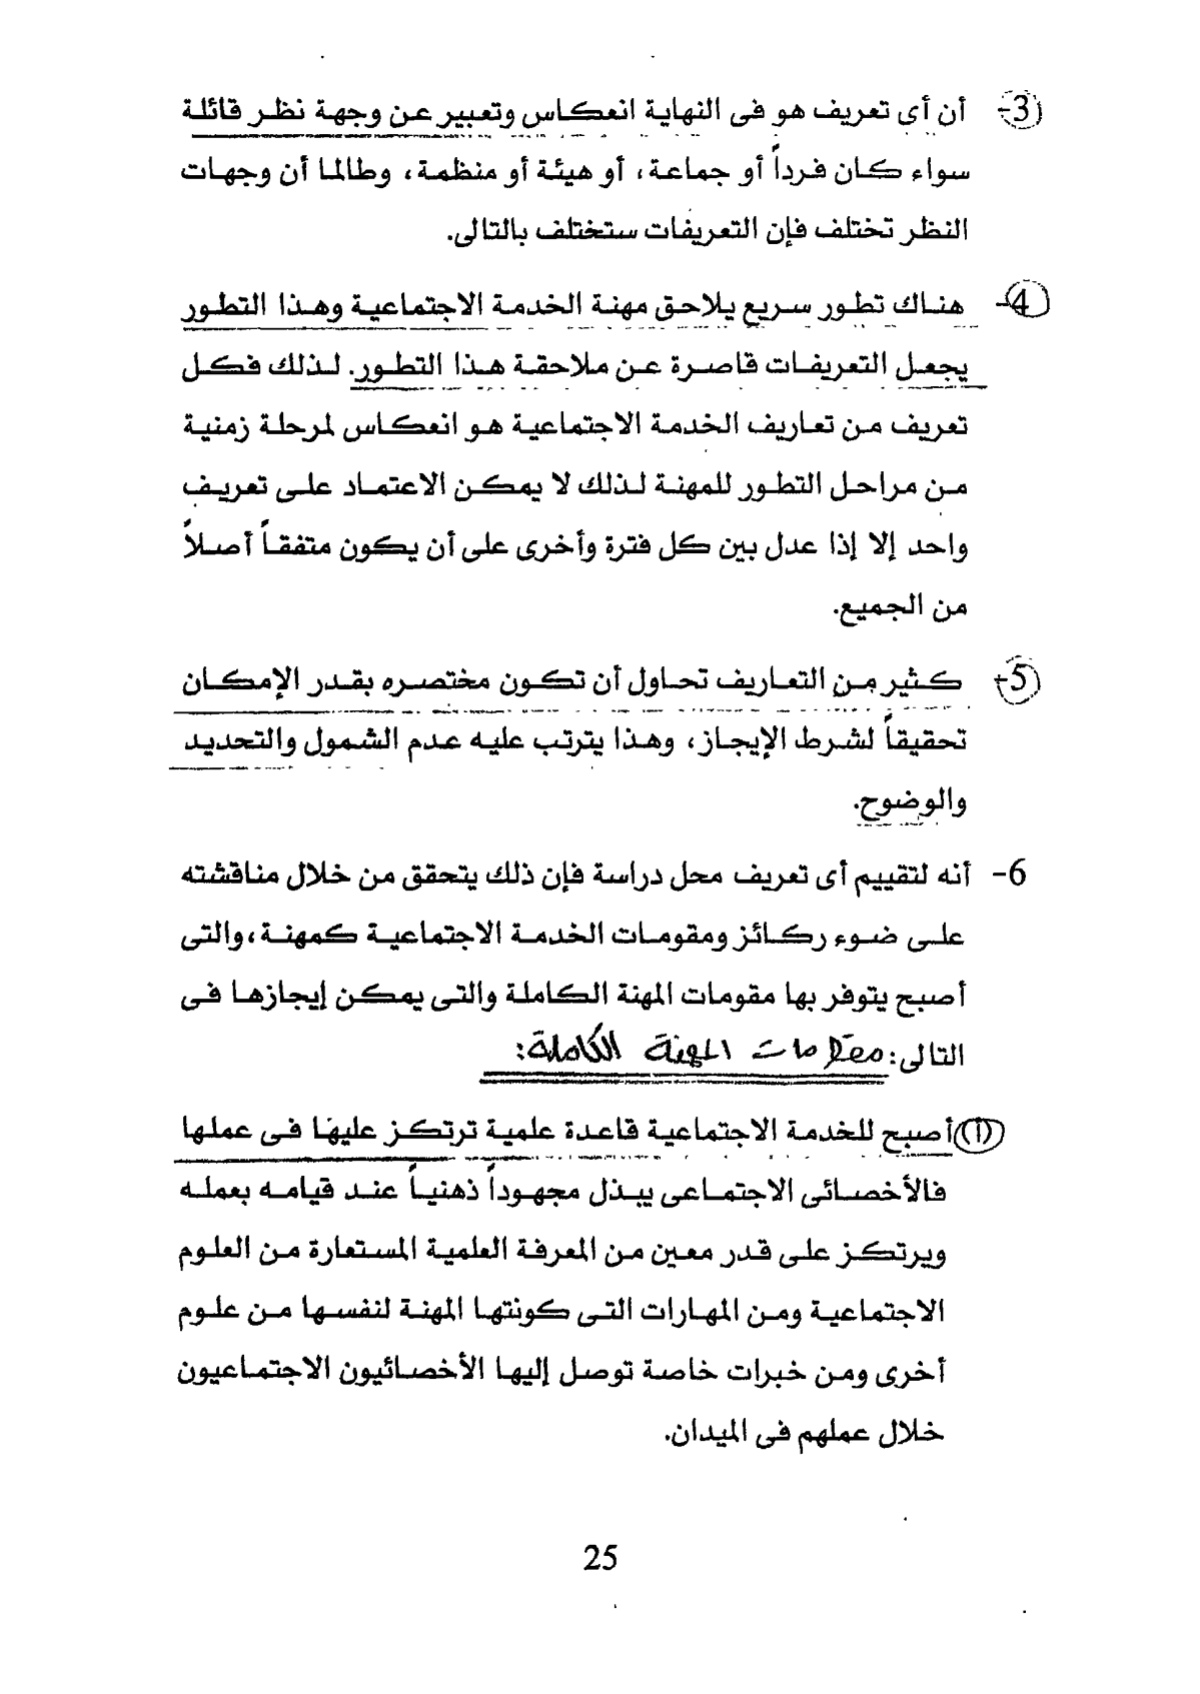 3- أن أى تعريف هو فى النهاية انعكاس وتعبير عن وجهة نظر قائلة
سواء كان فرداً أو جماعة، أو هيئة أو منظمة، وطالما أن وجهات
النظر تختلف فإن التعريفات ستختلف بالتالى.
4- هناك تطور سريع يلاحق مهنة الخدمة الاجتماعية وهذا التطور
يجعل التعريفات قاصرة عن ملاحقة هذا التطور. لذلك فكل
تعريف من تعاريف الخدمة الاجتماعية هو انعكاس لمرحلة زمنية
من مراحل التطور للمهنة لذلك لا يمكن الاعتماد على تعريف
واحد إلا إذا عدل بين كل فترة وأخرى على أن يكون متفقاً أصلاً
من الجميع.
5- كثير من التعاريف تحاول أن تكون مختصره بقدر الإمكان
تحقيقاً لشرط الإيجاز، وهذا يترتب عليه عدم الشمول والتحديد
والوضوح.
6- أنه لتقييم أى تعريف محل دراسة فإن ذلك يتحقق من خلال مناقشته
على ضوء ركائز ومقومات الخدمة الاجتماعية كمهنة، والتى
أصبح يتوفر بها مقومات المهنة الكاملة والتى يمكن إيجازها فى
التالى: مقومات المهنة الكاملة:
(أ) أصبح للخدمة الاجتماعية قاعدة علمية ترتكز عليها فى عملها
فالأخصائى الاجتماعى يبذل مجهوداً ذهنياً عند قيامه بعمله
ويرتكز على قدر معين من المعرفة العلمية المستعارة من العلوم
الاجتماعية ومن المهارات التى كونتها المهنة لنفسها من علوم
أخرى ومن خبرات خاصة توصل إليها الأخصائيون الاجتماعيون
خلال عملهم فى الميدان.
25